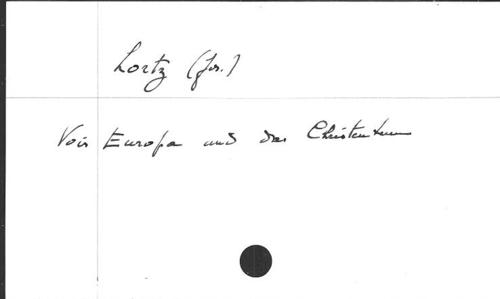 Lortz (Jos.)
Voir Europa und das Christentum